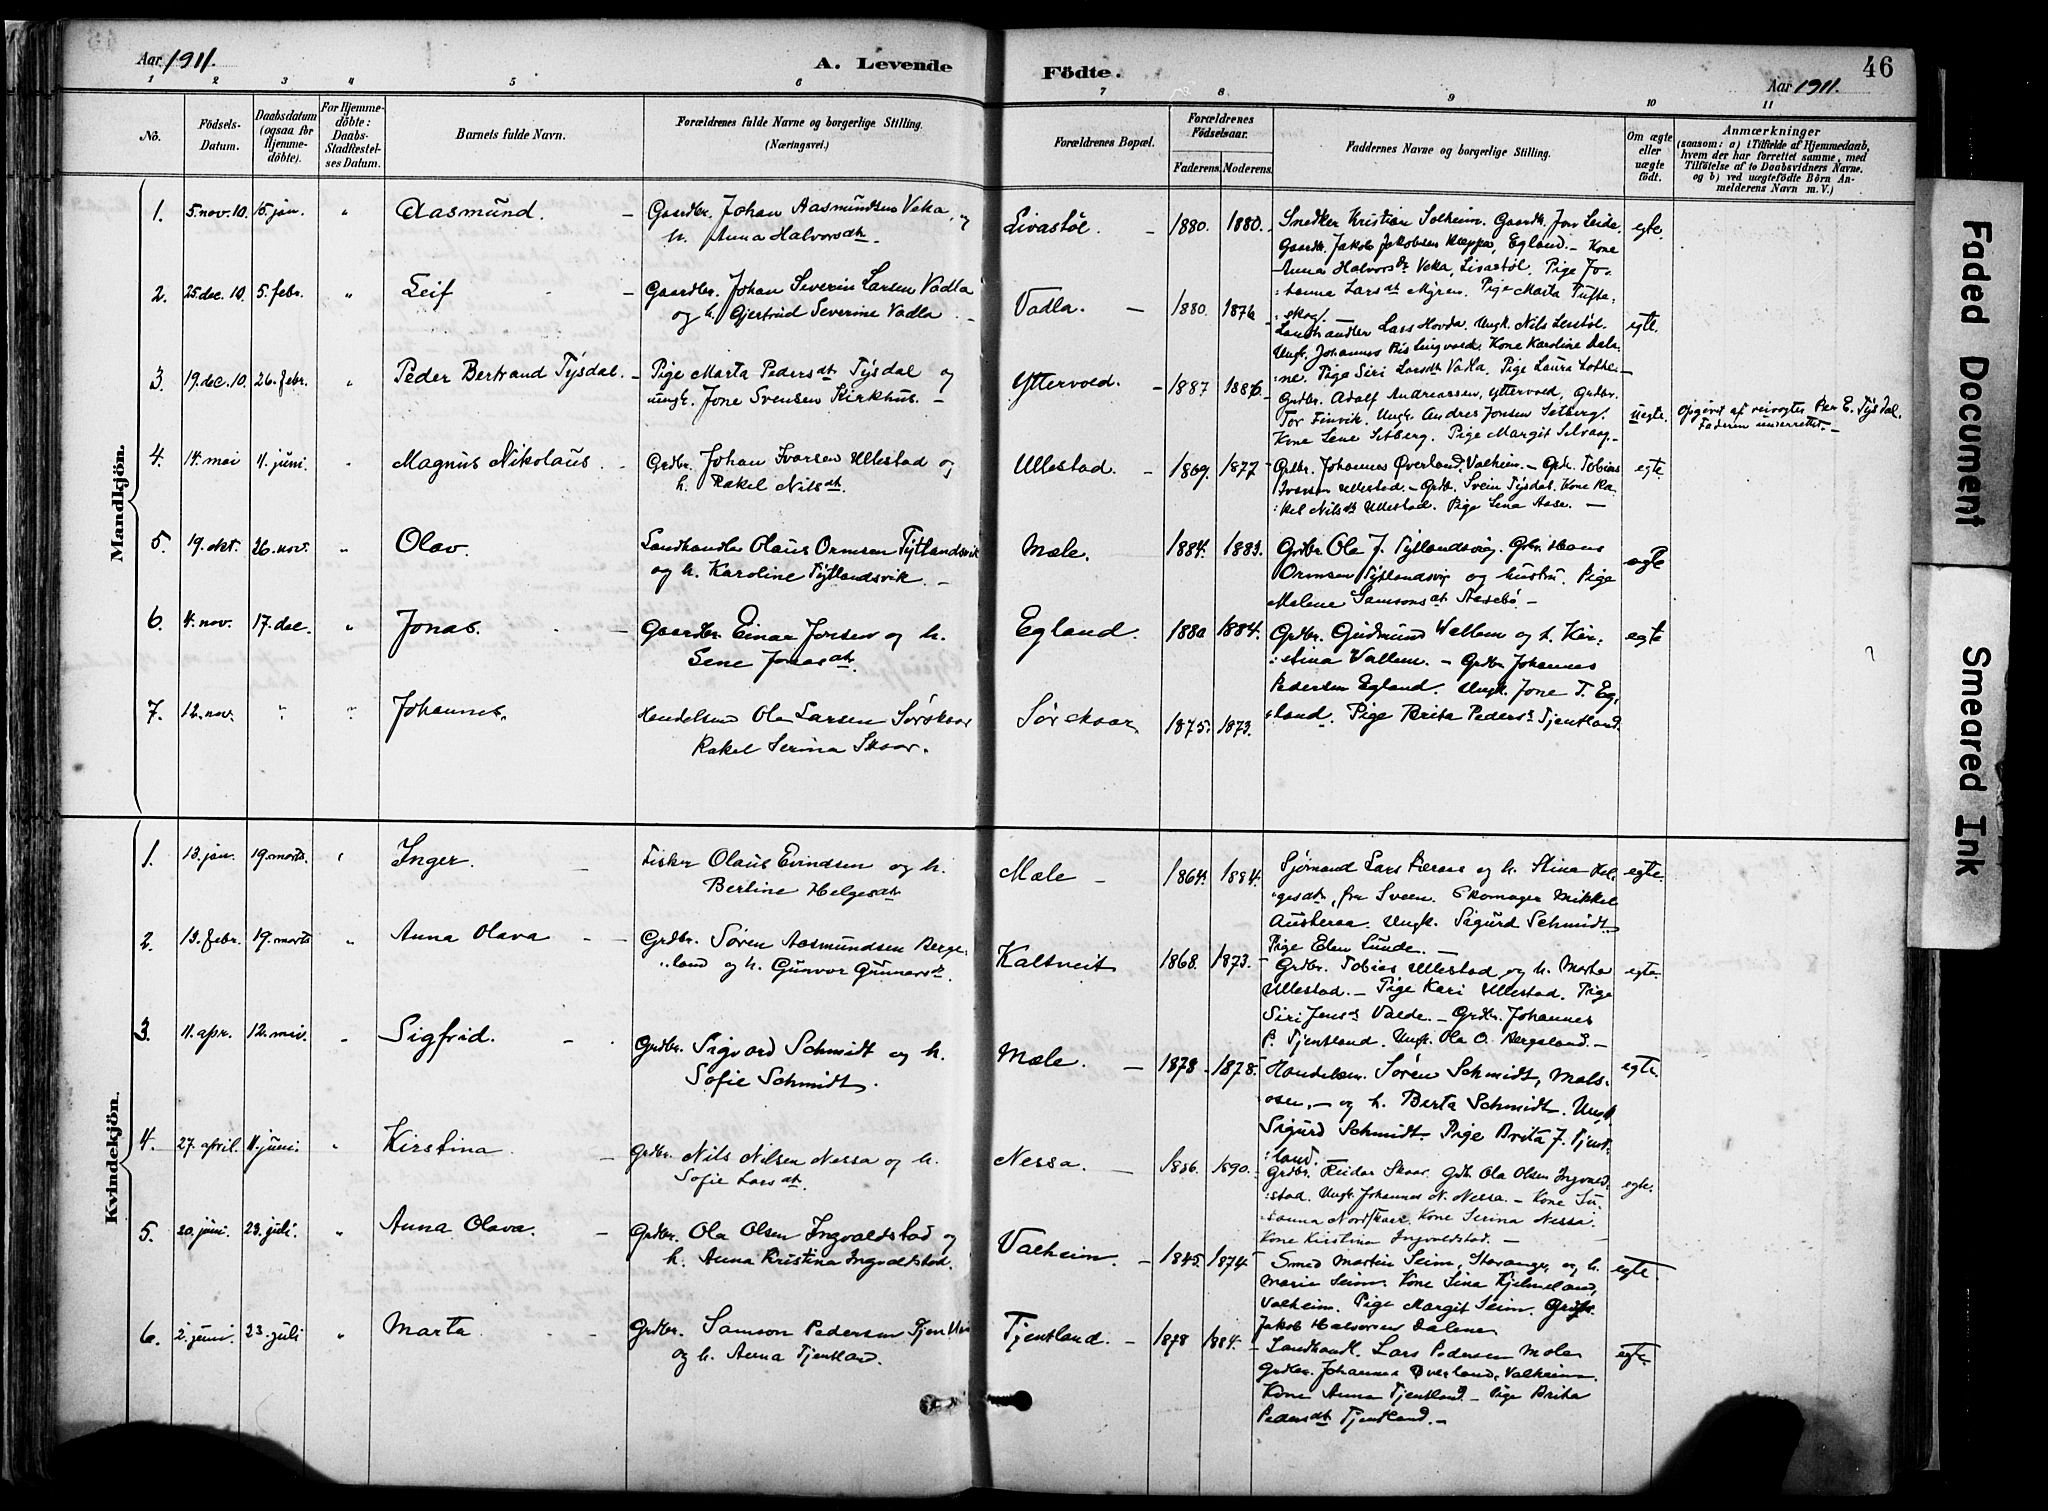 Aar 1911.
A. Levende
Födte.
46
Aar 1911.
1 2 3 4 5 6 7 8 9 10 11
No.
Födsels-
Datum.
Daabsdatum
(ogsaa for
Hjemme-
döbte).
For Hjemme-
döbte:
Daabs-
Stadfæstel-
ses Datum.
Barnets fulde Navn.
Forældrenes fulde Navne og borgerlige Stilling.
(Næringsvei.)
Forældrenes Bopæl.
Forældrenes
Födselsaar.
Faderens. Moderens.
Faddernes Navne og borgerlige Stilling.
Om ægte
eller
uægte
födt.
Anmærkninger
(saasom: a) i Tilfælde af Hjemmedaab,
hvem der har forrettet samme, med
Tilföielse af to Daabsvidners Navne.
og b) ved uægtefödte Börn An-
melderens Navn m. V.)
Mandkjön.
1. 5. nov. 10. 15. jan. " Aasmund. Gaardbr. Johan Aasmundsen Veka, og
h. Anna Halvorsdtr.
Livastøl. 1880. 1880.
Snedker Kristian Solheim. Gaardb. Jon Leida.
Gaardbr. Jakob Jakobsen Kleppa, Egland. - Kone
Anna Halvorsdr Veka, Livastøl. Pige Jo-
:hanna Larsdt Myren. Pige Marta Tufte-
:skog.
egte.
2. 25. dec. 10. 5. febr. " Leif Gaardbr. Johan Severin Larsen Vadla
og h. Gjertrud Severine Vadla.
Vadla. 1880. 1876
Landhandler Lars Hovda. Ungk. Nils Leistøl.
Ungk. Johannes Ris Lingvold. Kone Karoline Dala-
:ne. Pige Siri Larsdt Vadla. Pige Laura Lothe.
egte.
3. 19. dec. 10. 26. febr. " Peder Bertrand Tysdal. Pige Marta Pedersdt Tysdal og
ungk. Jone Svensen Kirkhus.
Yttervold. 1887 1886.
Grdbr. Adolf Andreassen, Yttervold, Grdbr.
Tor Finvik. Ungk. Andres Jonsen Setberg.
Kone Lene Setberg. Pige Margit Selvaag
uegte. Opgivet af veivogter Per E. Tysdal.
Faderen underrettet.
4. 14. mai 11. juni. " Magnus Nikolaus. Grdbr. Johan Ivarsen Ullestad og
h. Rakel Nilsdt.
Ullestad. 1869. 1877
Grdbr. Johannes Øverland, Valheim. - Grdr. Tobias
Ivarsen Ullestad. - Grdbr. Svein Tysdal. Kone Ra-
:kel Nilsdt Ullestad. Pige Lena Aase.
egte.
5. 19. okt. 26. nov. " Olav. Landhandler Olaus Ormsen Tytlandsvik
og h. Karoline Tytlandsvik.
Mæle. 1884. 1883.
Grdbr. Ola J. Tytlandsvig. Grbr. Hans
Ormsen Tytlandsvig og hustru. Pige
Malene Samsonsdt Aasebø.
egte
6. 4. nov. 17. dec. " Jonas. Gaardbr. Einar Jonsen og h.
Lene Jonasdt.
Egland. 1880 1884.
Grdbr. Gudmund Vallem og h. Kir-
:stina Vallem. - Grdbr. Johannes
Pedersen Egland. Ungk. Jone T. Eg-
:land. Pige Brita Peders. Tjentland.
egte
7. 12. nov. " " Johannes. Handelsmd Ola Larsen Sørskaar
Rakel Serina Skaar.
Sørskaar 1875. 1873.
Kvindekjön.
1. 13. jan. 19. marts. " Inger. Fisker Olaus Evindsen og h.
Bertine Helgesdt
Mæle 1864. 1884.
Sjømand Lars Færaas og h. Stina Hel-
:gesdt, fra Sveen. Skomager Mikkel
Austeraa. Ungk. Sigurd Schmidt
Pige Elen Lunde.
egte.
2. 13. febr. 19. marts " Anna Olava Grdbr. Søren Aasmundsen Berge-
:land og h. Gunvor Gunnarsdt.
Kaltveit 1868. 1873.
Grdbr. Tobias Ullestad og h. Marta
Ullestad. - Pige Kari Ullestad. Pige
Siri Jensdt Valde. - Grdbr. Johannes
P. Tjentland. Ungk. Ola O. Bergeland.
egte.
3. 11. apr. 12. mai. " Sigfrid. Grdbr. Sigvard Schmidt og h.
Sofie Schmidt.
Mæle. 1878 1878.
Handelsm. Søren Schmidt, Mæls-
osen, - og h. Berta Schmidt. Ungk
Sigurd Schmidt. Pige Brita J. Tjent-
:land.
egte.
4. 27. april. 11. juni. " Kirstina Grdbr. Nils Nilsen Nessa og h.
Sofie Larsdt.
Nessa. 1886. 1890.
Grdbr. Reidar Skaar. Gdb. Ola Olsen Ingvald-
:stad. Ungk. Johannes N. Nessa. - Kone Su-
:sanna Nordskaar. Kone Serina Nessa.
Kone Kirstina Ingvaldstad.
egte.
5. 20. juni. 23. juli. " Anna Olava. Grdbr. Ola Olsen Ingvaldstad og
h. Anna Kristina Ingvaldstad.
Valheim. 1845. 1874
Smed Martin Seim, Stavanger, og h.
Marie Seim. Kone Sina Hjelmeland,
Valheim. Pige Margit Seim. Grdbr.
Jakob Halvorsen Dalene.
egte.
6. 2. juni. 23. juli " Marta Grdbr. Samson Pedersen Tjentland
og h. Anna Tjentland.
Tjentland. 1878 1884.
Landhandl. Lars Pedersen Mæle
Grdbr. Johannes Øverland, Valheim.
Kone Anna Tjentland. Pige Brita
Pedersdt Tjentland.
egte.
Faded Document
Smeared Ink